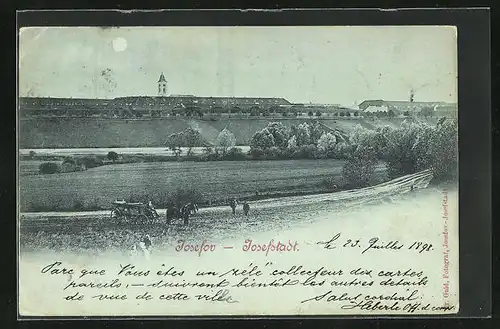 Josefov – Josefstadt.
le 23 Juillet 1898.
Parc que Vous êtes un zélé collecteur des cartes
pareils, – suivront bientôt les autres détails
de vue de cette ville
Salut cordial
Häberle Off. d.